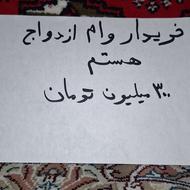 خریدار وام ازدواج
هستم
۳۰۰ میلیون تومان